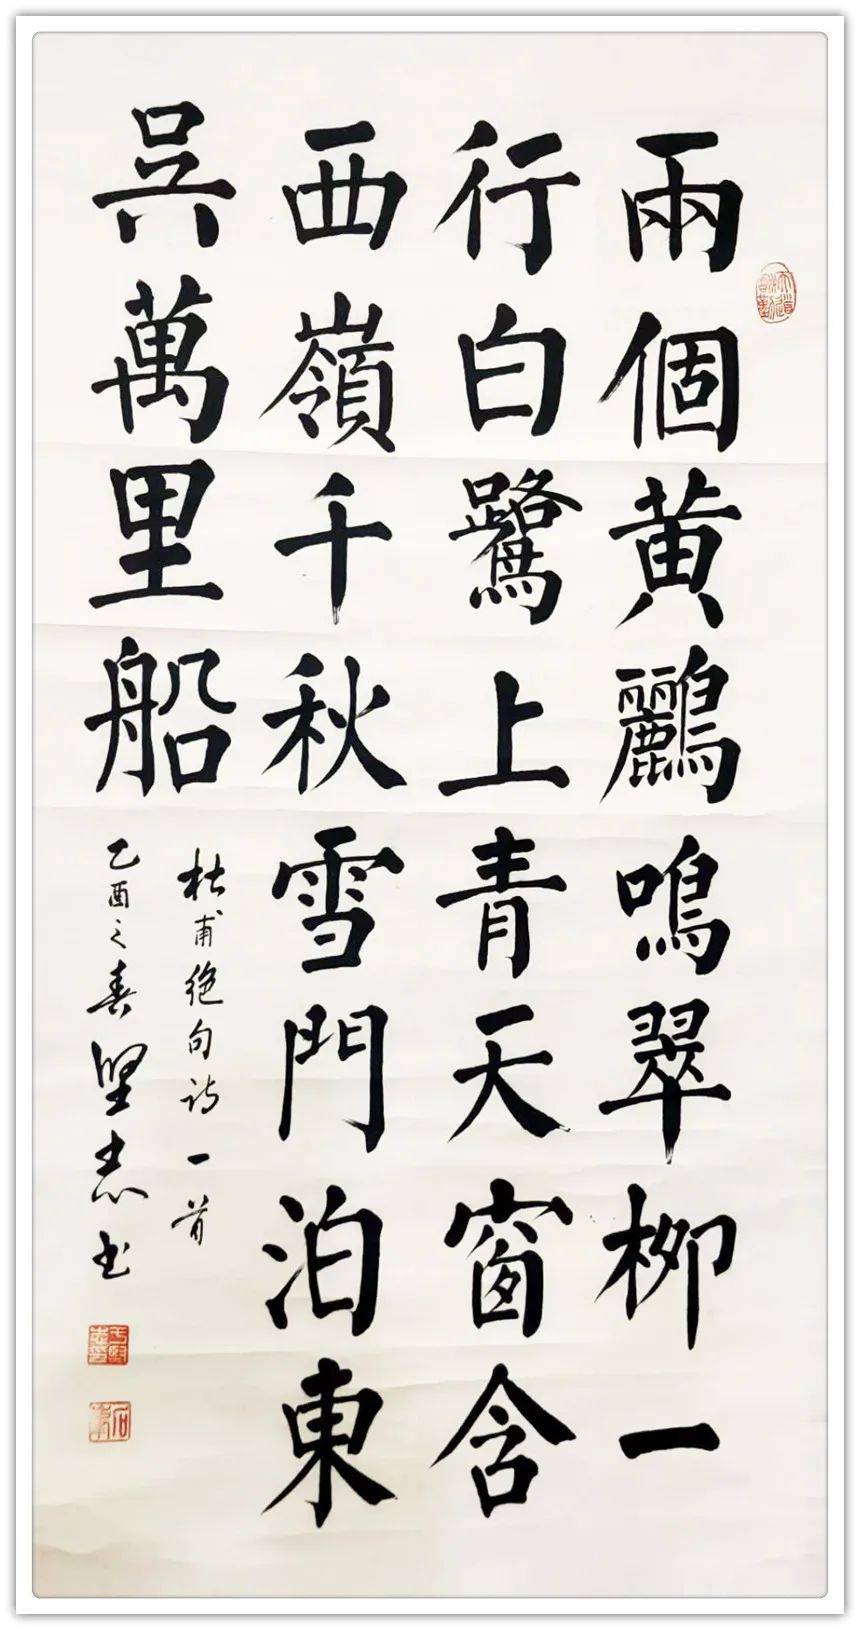 兩個黄鸝鳴翠柳一
行白鷺上青天窗含
西嶺千秋雪門泊東
吳萬里船
杜甫绝句诗一首
乙酉之春坚志书